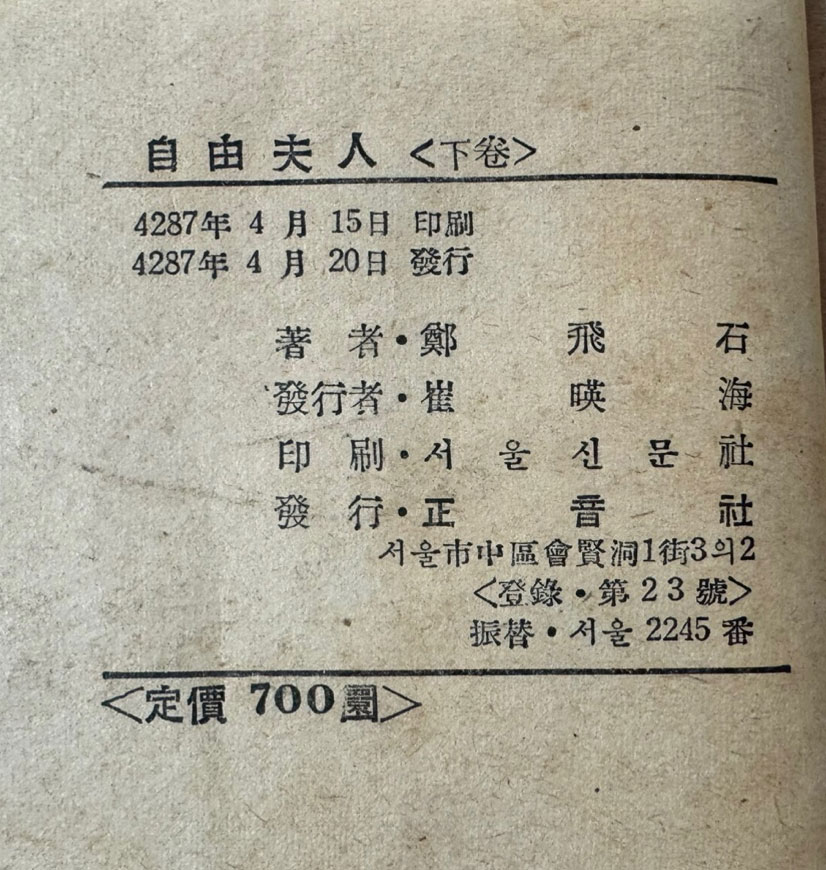 自由夫人 <下卷>
4287年 4 月 15日 印刷
4287年 4 月 20日 發行
著 者・鄭 飛 石
發行者・崔 暎 海
印 刷・서 울 신 문 社
發 行・正 音 社
서울市中區會賢洞1街3의2
<登錄・第 2 3 號>
振替・서울 2245 番
<定價 700圜>